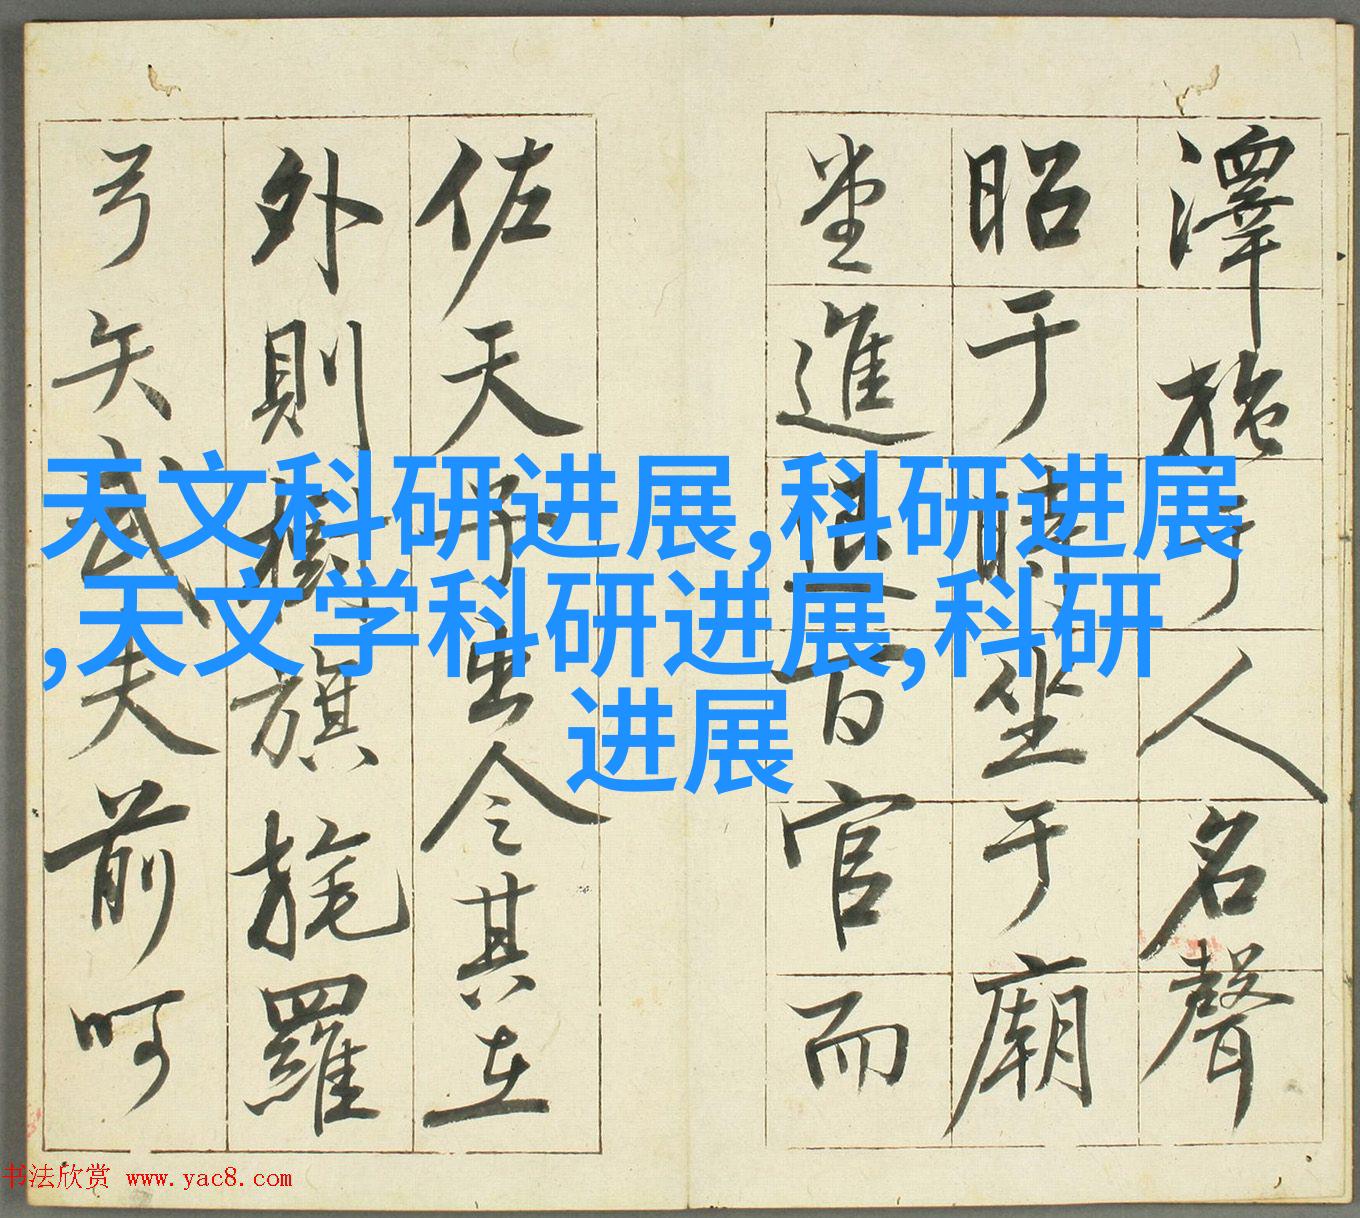 澤施于人名聲
昭于時坐于廟
堂進退百官而
佐天子出令其在
外則樹旗旄羅
弓矢武夫前呵
天文科研进展,科研进展
,天文学科研进展,科研
进展
书法欣赏 www.yac8.com